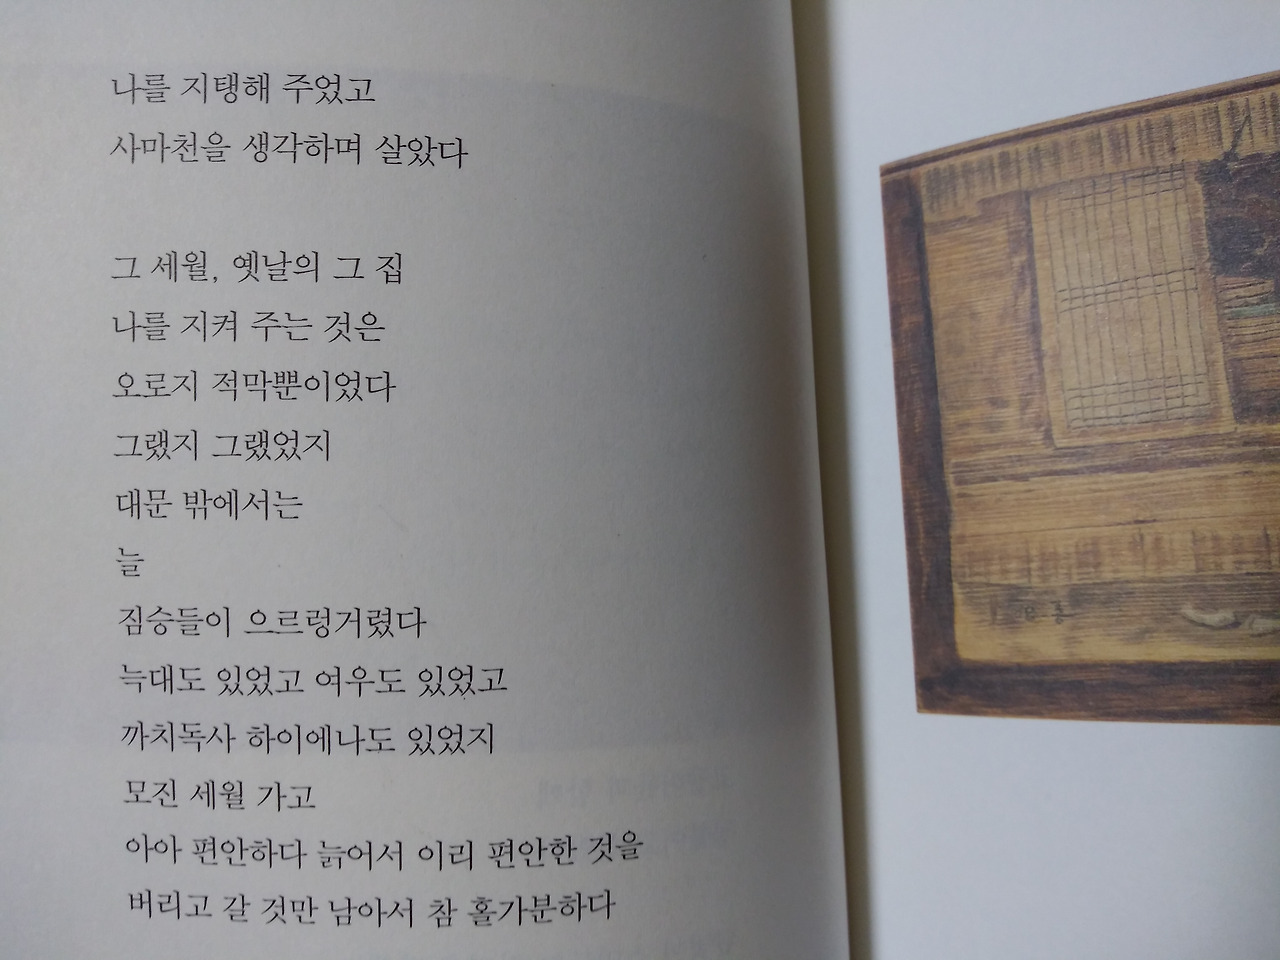 나를 지탱해 주었고
사마천을 생각하며 살았다
그 세월, 옛날의 그 집
나를 지켜 주는 것은
오로지 적막뿐이었다
그랬지 그랬었지
대문 밖에서는
늘
짐승들이 으르렁거렸다
늑대도 있었고 여우도 있었고
까치독사 하이에나도 있었지
모진 세월 가고
아아 편안하다 늙어서 이리 편안한 것을
버리고 갈 것만 남아서 참 홀가분하다